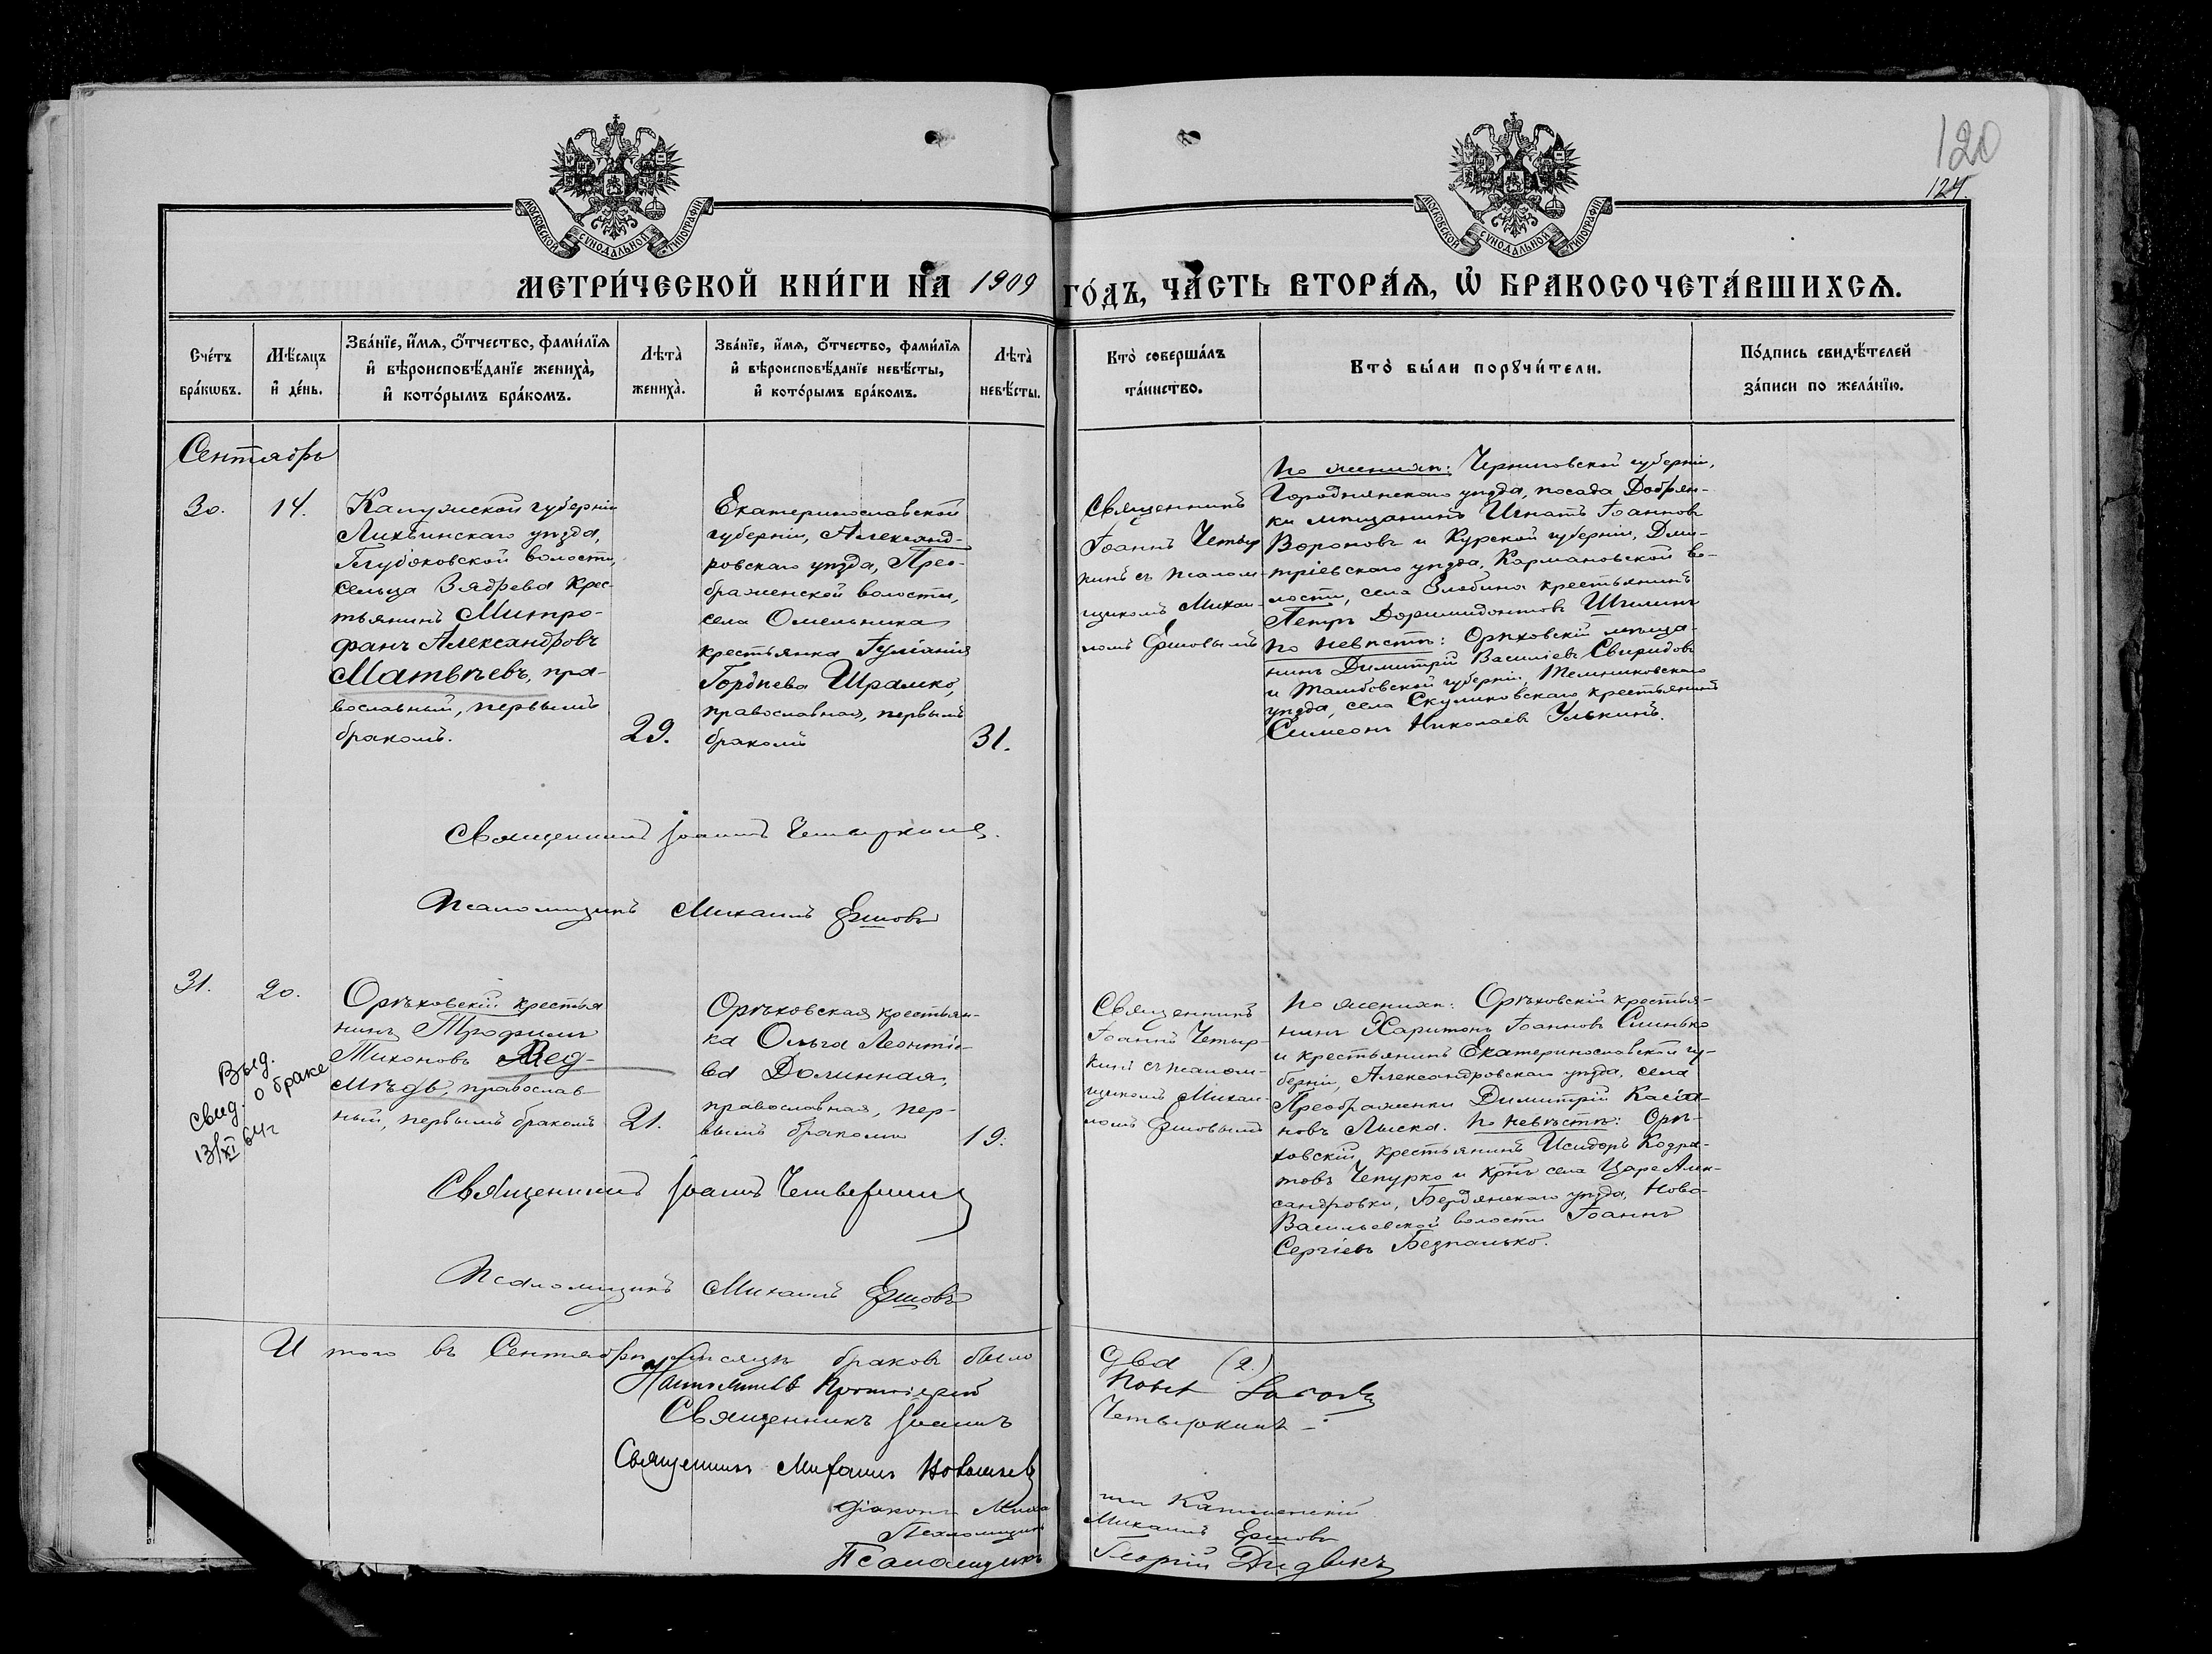 120
124.
МОСКОВСКОЙ СѴНОДАЛЬНОЙ ТИПОГРАФІИ
МОСКОВСКОЙ СѴНОДАЛЬНОЙ ТИПОГРАФІИ
МЕТРИ́ЧЕСКОЙ КНИ́ГИ НА 1909 ГО́ДЪ, ЧА́СТЬ ВТОРА́Ѧ, Ѽ БРАКОСОЧЕТА́ВШИХСѦ.
Сче́тъ бра́кѡвъ.
Мѣ́сѧцъ и҆ де́нь.
Зва́нїе, и҆́мѧ, ѻ҆́тчество, фами́лїѧ
и҆ вѣроисповѣ́данїе жениха̀,
и҆ кото́рымъ бра́комъ.
Лѣта̀ жениха̀.
Зва́нїе, и҆́мѧ, ѻ҆́тчество, фами́лїѧ
и҆ вѣроисповѣ́данїе невѣ́сты,
и҆ кото́рымъ бра́комъ.
Лѣта̀ невѣ́сты.
Кто̀ соверша́лъ
та́инство.
Кто̀ бы́ли порꙋчи́тели.
По́дпись свидѣ́телей
за́писи по жела́нїю.
Сентябрь
30.
14.
Калужской губерніи
Лихвинскаго уѣзда,
Глубоковской волости,
сельца Зябрева крес-
тьянинъ Митро-
фанъ Александровъ
Матвѣевъ, пра-
вославный, первымъ
бракомъ.
29.
Екатеринославской
губерніи, Александ-
ровскаго уѣзда, Прео-
браженской волости,
села Омельника
крестьянка Іуліанія
Гордѣева Шрамко,
православная, первымъ
бракомъ
31.
Священникъ
Іоаннъ Четыр
кинъ съ псалом-
щикомъ Михаи-
ломъ Ершовымъ
По женихѣ: Черниговской губерніи,
Городнянскаго уѣзда, посада Добрян-
ки мѣщанинъ Игнатъ Іоанновъ
Вороновъ и Курской губерніи, Дми-
тріевскаго уѣзда, Кармановской во-
лости, села Злобина крестьянинъ
Петръ Доримидонтовъ Шилинъ
По невѣстѣ: Орѣховскій мѣща-
нинъ Димитрій Василіевъ Свиридовъ
и Тамбовской губерніи, Темниковскаго
уѣзда, села Скуликовскаго крестьянинъ
Симеонъ Николаевъ Улькинъ.
Священникъ Іоаннъ Четыркинъ.
Псаломщикъ Михаилъ Ершовъ
31.
20.
Орѣховскій крестья
нинъ Трофимъ
Тихоновъ Мед-
мѣдь, православ
ный, первымъ бракомъ
21.
Орѣховская крестьян-
ка Ольга Леонтіе-
ва Долинная,
православная, пер-
вымъ бракомъ
19.
Выд.
свид. о браке
13/XI 64 г
Священникъ
Іоаннъ Четыр-
кинъ съ псалом-
щикомъ Михаи-
ломъ Ершовымъ
По женихѣ: Орѣховскій крестья-
нинъ Харитонъ Іоанновъ Синько
и крестьянинъ Екатеринославской гу-
берніи, Александровскаго уѣзда, села
Преображенки Димитрій Касіа-
новъ Лыска. По невѣстѣ: Орѣ-
ховскій крестьянинъ Исидоръ Кодра-
товъ Чепурко и кр-нъ села Царе Алек-
сандровки, Бердянскаго уѣзда, Ново-
Васильевской волости Іоаннъ
Сергіевъ Безпалько.
Священникъ Іоаннъ Четыркинъ
Псаломщикъ Михаилъ Ершовъ
И того въ Сентябрѣ мѣсяцѣ браковъ было два (2.)
Настоятель Протоіерей
Священникъ Іоаннъ Четыркинъ
Священникъ Михаилъ
Діаконъ Миха илъ Каменскій
Псаломщикъ Михаилъ Ершовъ
Псаломщикъ Георгій